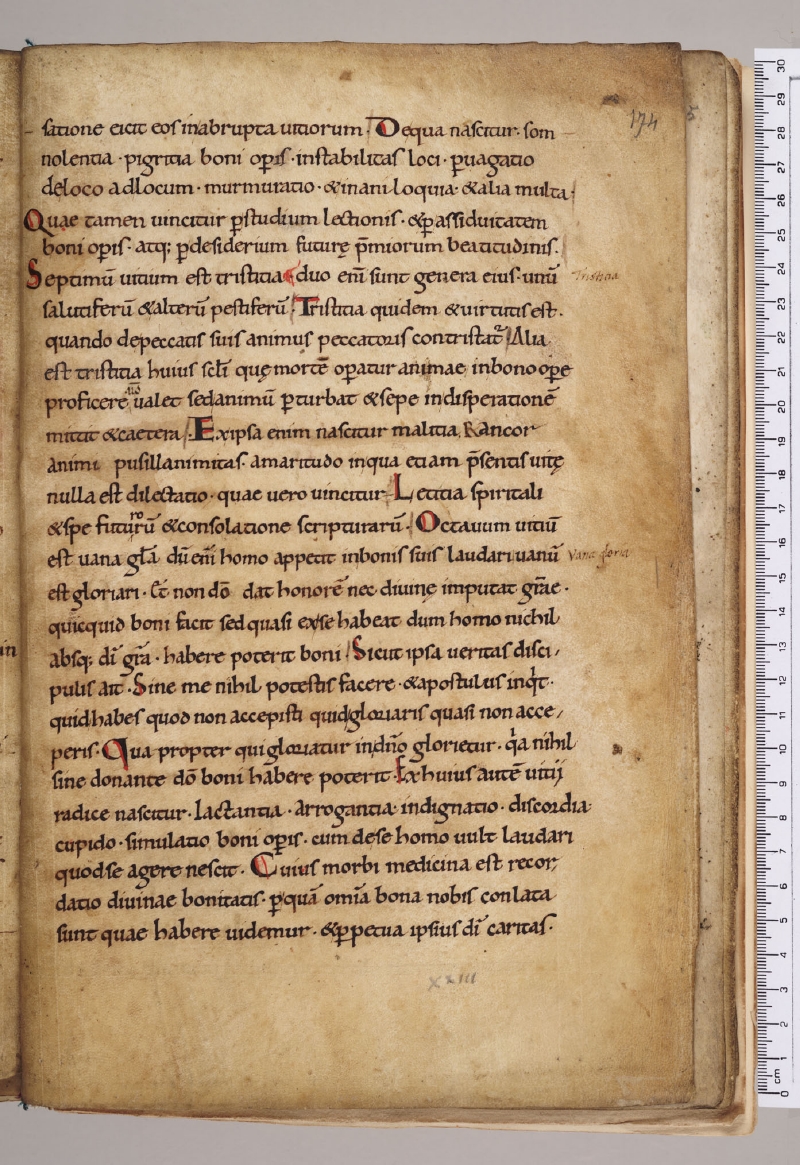 174
satione eicit eos inabrupta uitiorum. Dequa nascitur. som
nolentia. pigritia boni op̄is. instabilitas loci. puagatio
deloco adlocum. murmuratio. &inaniloquia. &alia multa.
Quae tamen uincitur pstudium lectionis. &passiduitatem
boni opis. atq; pdesiderium futurę p̄miorum beatitudinis.
Septimū uitium est tristitia duo eni̅ sunt genera eius. unū Tristitia
salutiferū &alterū pestiferū. Tristitia quidem &uirtutis est.
quando depeccatis suis animus peccatoris contristat̄ Alia
est tristitia huius sclī quę mortē opatur animae inbono ope
proficere ualet sedanimū pturbat &sepe indisperationē
mittit &caetera. Exipsa enim nascitur malitia. Rancor
animi pusillanimitas. amaritudo inqua etiam p̄sentis uitę
nulla est dilectatio. quae uero uincitur Letitia spiritali
&spe futurū &consolatione scripturarū. Octauum uitiū
est uana gła̅ dū eni̅ homo appetit inbonis suis laudari uanū Vana gloria
est gloriari. Et non dō dat honorē nec diuinę imputat gr̅ae.
quicquid boni facit sed quasi exse habeat dum homo nichil
absq; di̅ gra̅. habere poterit boni. Sicut ipsa ueritas disci/
pulis ait. Sine me nihil potestis facere. &apostulus inqt.
quidhabes quod non accepisti quidgloriaris quasi non acce/
peris. Qua propter qui gloriatur indn̅o glorietur. qa nihil
sine donante dō boni habere poterit. Exhuius autē uitij
radice nascitur. Iactantia. arrogantia. indignatio. discordia.
cupido. simulatio boni opis. cum dese homo uult laudari
quodse agere nescit. Cuius morbi medicina est recor/
datio diuinae bonitatis. pquā omi̅a bona nobis conlata
sunt quae habere uidemur. &ppetua ipsius di̅ caritas.
xxiii